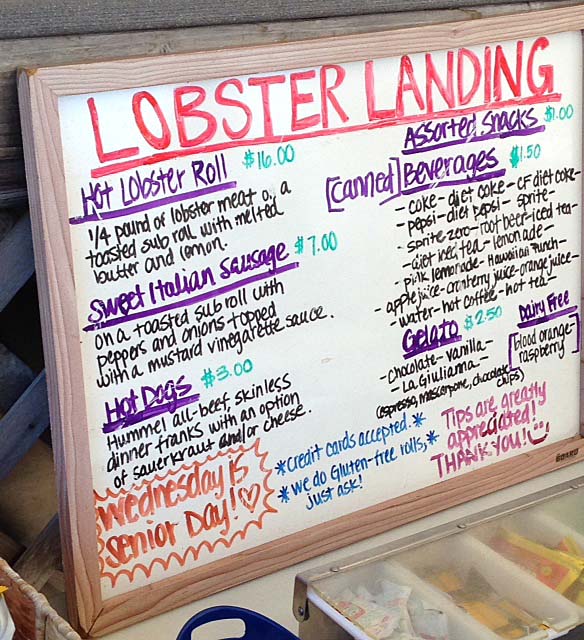 LOBSTER LANDING
Hot Lobster Roll $16.00
1/4 pound of lobster meat on a
toasted sub roll with melted
butter and lemon.
Sweet Italian Sausage $7.00
on a toasted sub roll with
peppers and onions topped
with a mustard vinegarette sauce.
Hot Dogs $3.00
Hummel all-beef skinless
dinner franks with an option
of sauerkraut and/or cheese.
Wednesday is
Senior Day!
Assorted Snacks $1.00
[Canned] Beverages $1.50
- coke - diet coke - CF diet coke -
- pepsi - diet pepsi - sprite -
- sprite zero - root beer - iced tea -
- diet iced tea - lemonade -
- pink lemonade - Hawaiian Punch -
- apple juice - cranberry juice - orange juice -
- water - hot coffee - hot tea -
Gelato $2.50
- chocolate - vanilla -
- La Giulianna -
(espresso, mascarpone, chocolate
chips)
Dairy Free
blood orange -
raspberry
*credit cards accepted.*
*we do Gluten-free rolls,*
just ask!
Tips are greatly
appreciated!
THANK YOU!
BOARD